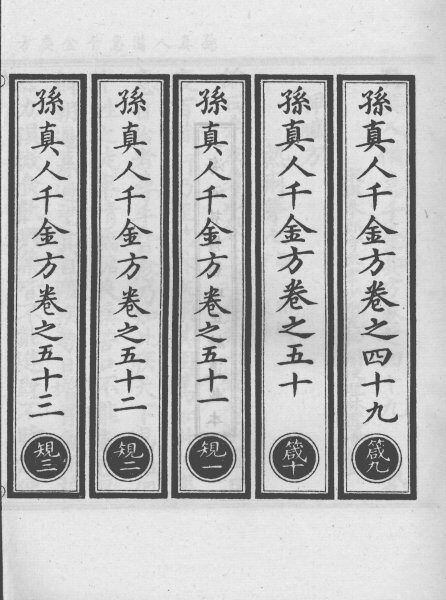 孫真人千金方卷之四十九
箴九
孫真人千金方卷之五十
箴十
孫真人千金方卷之五十一
規一
孫真人千金方卷之五十二
規二
孫真人千金方卷之五十三
規三